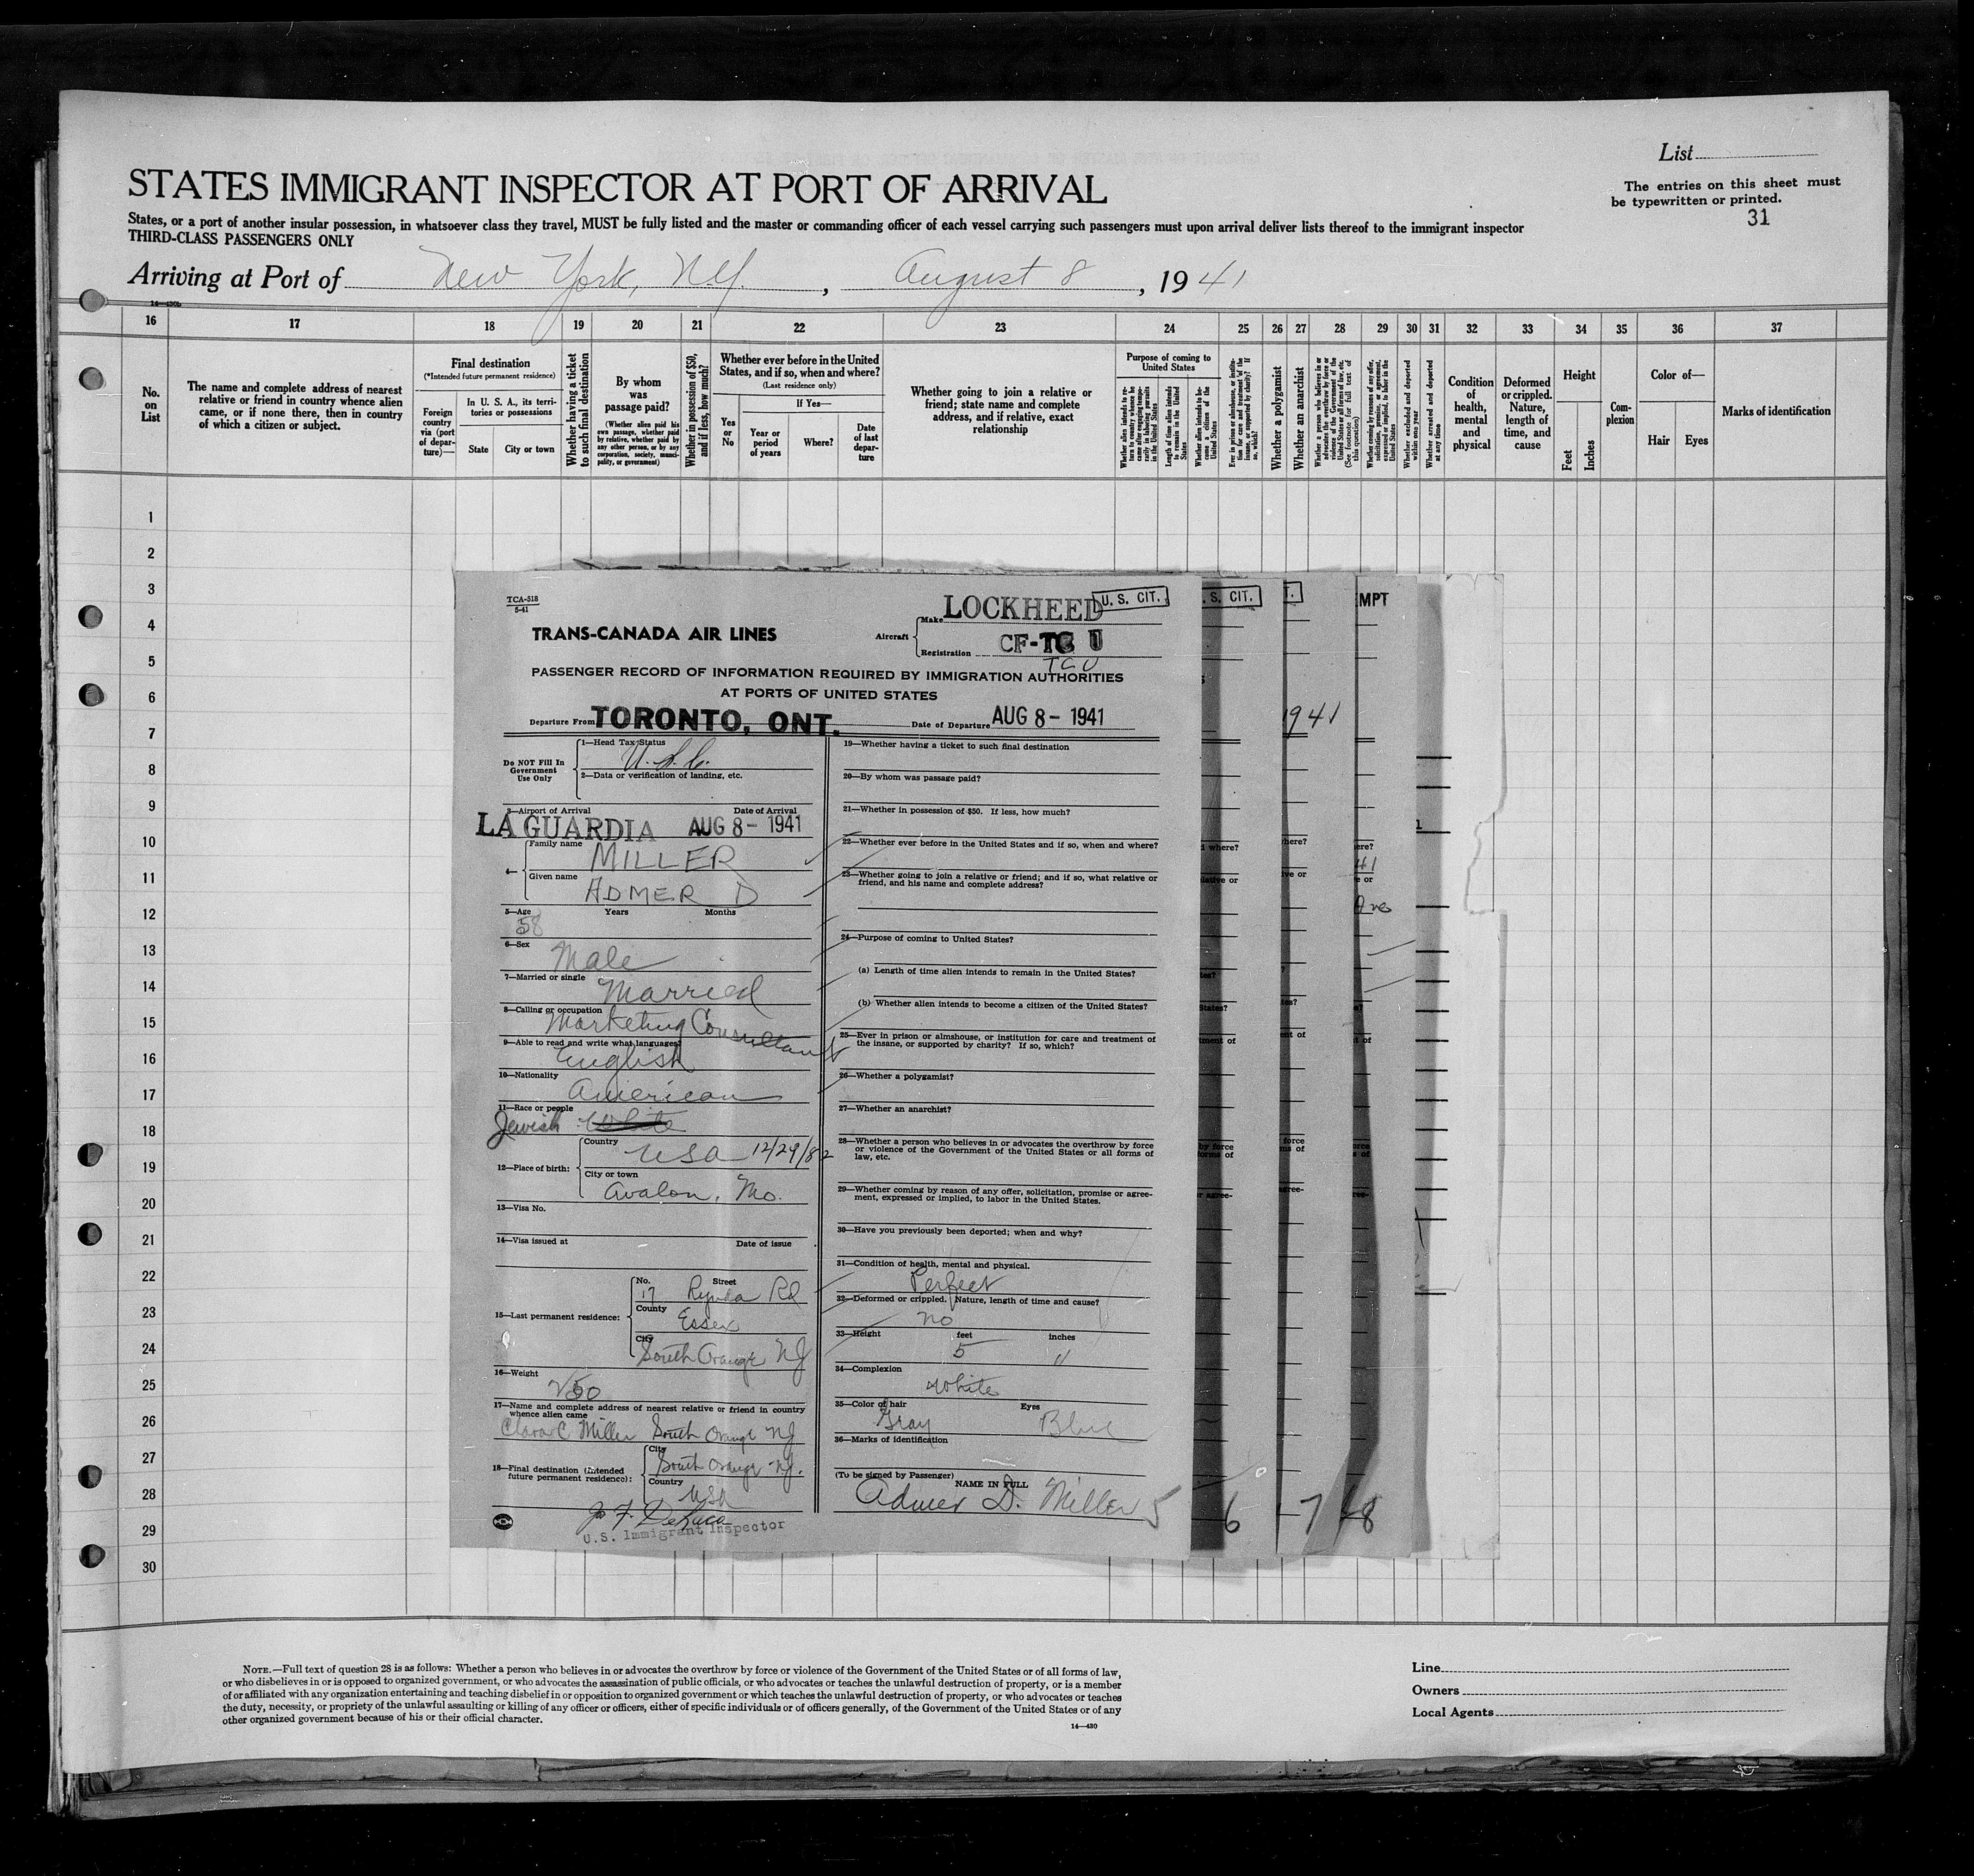 List
The entries on this sheet must
be typewritten or printed.
31
STATES IMMIGRANT INSPECTOR AT PORT OF ARRIVAL
States, or a port of another insular possession, in whatsoever class they travel, MUST be fully listed and the master or commanding officer of each vessel carrying such passengers must upon arrival deliver lists thereof to the immigrant inspector
THIRD-CLASS PASSENGERS ONLY
Arriving at Port of New York, N.Y. , August 8 , 1941
14-430b
16 17 18 19 20 21 22 23 24 25 26 27 28 29 30 31 32 33 34 35 36 37
No. on List
The name and complete address of nearest
relative or friend in country whence alien
came, or if none there, then in country
of which a citizen or subject.
Final destination
(*Intended future permanent residence)
Foreign
country
via (port
of depar-
ture)—
In U. S. A., its terri-
tories or possessions
State City or town
Whether having a ticket
to such final destination
By whom
was
passage paid?
(Whether alien paid his
own passage, whether paid
by relative, whether paid by
any other person, or by any
corporation, society, munici-
pality, or government)
Whether in possession of $50,
and if less, how much?
Whether ever before in the United
States, and if so, when and where?
(Last residence only)
Yes
or
No
If Yes—
Year or
period
of years
Where?
Date
of last
depar-
ture
Whether going to join a relative or
friend; state name and complete
address, and if relative, exact
relationship
Purpose of coming to
United States
Length of time alien intends
to remain in the United
States
Whether alien intends to be-
come a citizen of the
United States
Whether a polygamist
Whether an anarchist
Whether excluded and deported
within one year
Whether arrested and deported
at any time
Condition
of
health,
mental
and
physical
Deformed
or crippled.
Nature,
length of
time, and
cause
Height
Feet
Inches
Com-
plexion
Color of—
Hair Eyes
Marks of identification
1
2
3
4
5
6
7
8
9
10
11
12
13
14
15
16
17
18
19
20
21
22
23
24
25
26
27
28
29
30
TCA-518
5-41
TRANS-CANADA AIR LINES
Aircraft
Make LOCKHEED
U. S. CIT.
Registration CF-TC U
TCU
PASSENGER RECORD OF INFORMATION REQUIRED BY IMMIGRATION AUTHORITIES
AT PORTS OF UNITED STATES
Departure From TORONTO, ONT. Date of Departure AUG 8 - 1941
Do NOT Fill In
Government
Use Only
1—Head Tax Status
U.S.C.
2—Data or verification of landing, etc.
3—Airport of Arrival Date of Arrival
LA GUARDIA AUG 8 - 1941
4—
Family name MILLER
Given name ADMER D
5—Age Years Months
58
6—Sex
Male
7—Married or single
Married
8—Calling or occupation
Marketing Consultant
9—Able to read and write what languages?
English
10—Nationality
American
11—Race or people
Jewish White
12—Place of birth:
Country
USA 12/29/82
City or town
Avalon, Mo.
13—Visa No.
14—Visa issued at Date of issue
15—Last permanent residence:
No. Street
17 Rynda Rd
County
Essex
City
South Orange NJ
16—Weight
250
17—Name and complete address of nearest relative or friend in country
whence alien came
Clara C Miller South Orange NJ
18—Final destination (Intended
future permanent residence):
City
South Orange NJ.
Country
USA
U.S. Immigrant Inspector
19—Whether having a ticket to such final destination
20—By whom was passage paid?
21—Whether in possession of $50. If less, how much?
22—Whether ever before in the United States and if so, when and where?
23—Whether going to join a relative or friend; and if so, what relative or
friend, and his name and complete address?
24—Purpose of coming to United States?
(a) Length of time alien intends to remain in the United States?
(b) Whether alien intends to become a citizen of the United States?
25—Ever in prison or almshouse, or institution for care and treatment of
the insane, or supported by charity? If so, which?
26—Whether a polygamist?
27—Whether an anarchist?
28—Whether a person who believes in or advocates the overthrow by force
or violence of the Government of the United States or all forms of
law, etc.
29—Whether coming by reason of any offer, solicitation, promise or agree-
ment, expressed or implied, to labor in the United States.
30—Have you previously been deported; when and why?
31—Condition of health, mental and physical.
Perfect
32—Deformed or crippled. Nature, length of time and cause?
no
33—Height feet inches
5 11
34—Complexion
White
35—Color of hair Eyes
Gray Blue
36—Marks of identification
(To be signed by Passenger)
NAME IN FULL
Admer D. Miller 5
S. CIT.
T.
MPT
1941
6 7 8
NOTE.—Full text of question 28 is as follows: Whether a person who believes in or advocates the overthrow by force or violence of the Government of the United States or of all forms of law,
or who disbelieves in or is opposed to organized government, or who advocates the assassination of public officials, or who advocates or teaches the unlawful destruction of property, or is a member
of or affiliated with any organization entertaining and teaching disbelief in or opposition to organized government or which teaches the unlawful destruction of property, or who advocates or teaches
the duty, necessity, or propriety of the unlawful assaulting or killing of any officer or officers, either of specific individuals or of officers generally, of the Government of the United States or of any
other organized government because of his or their official character.
14—430
Line
Owners
Local Agents